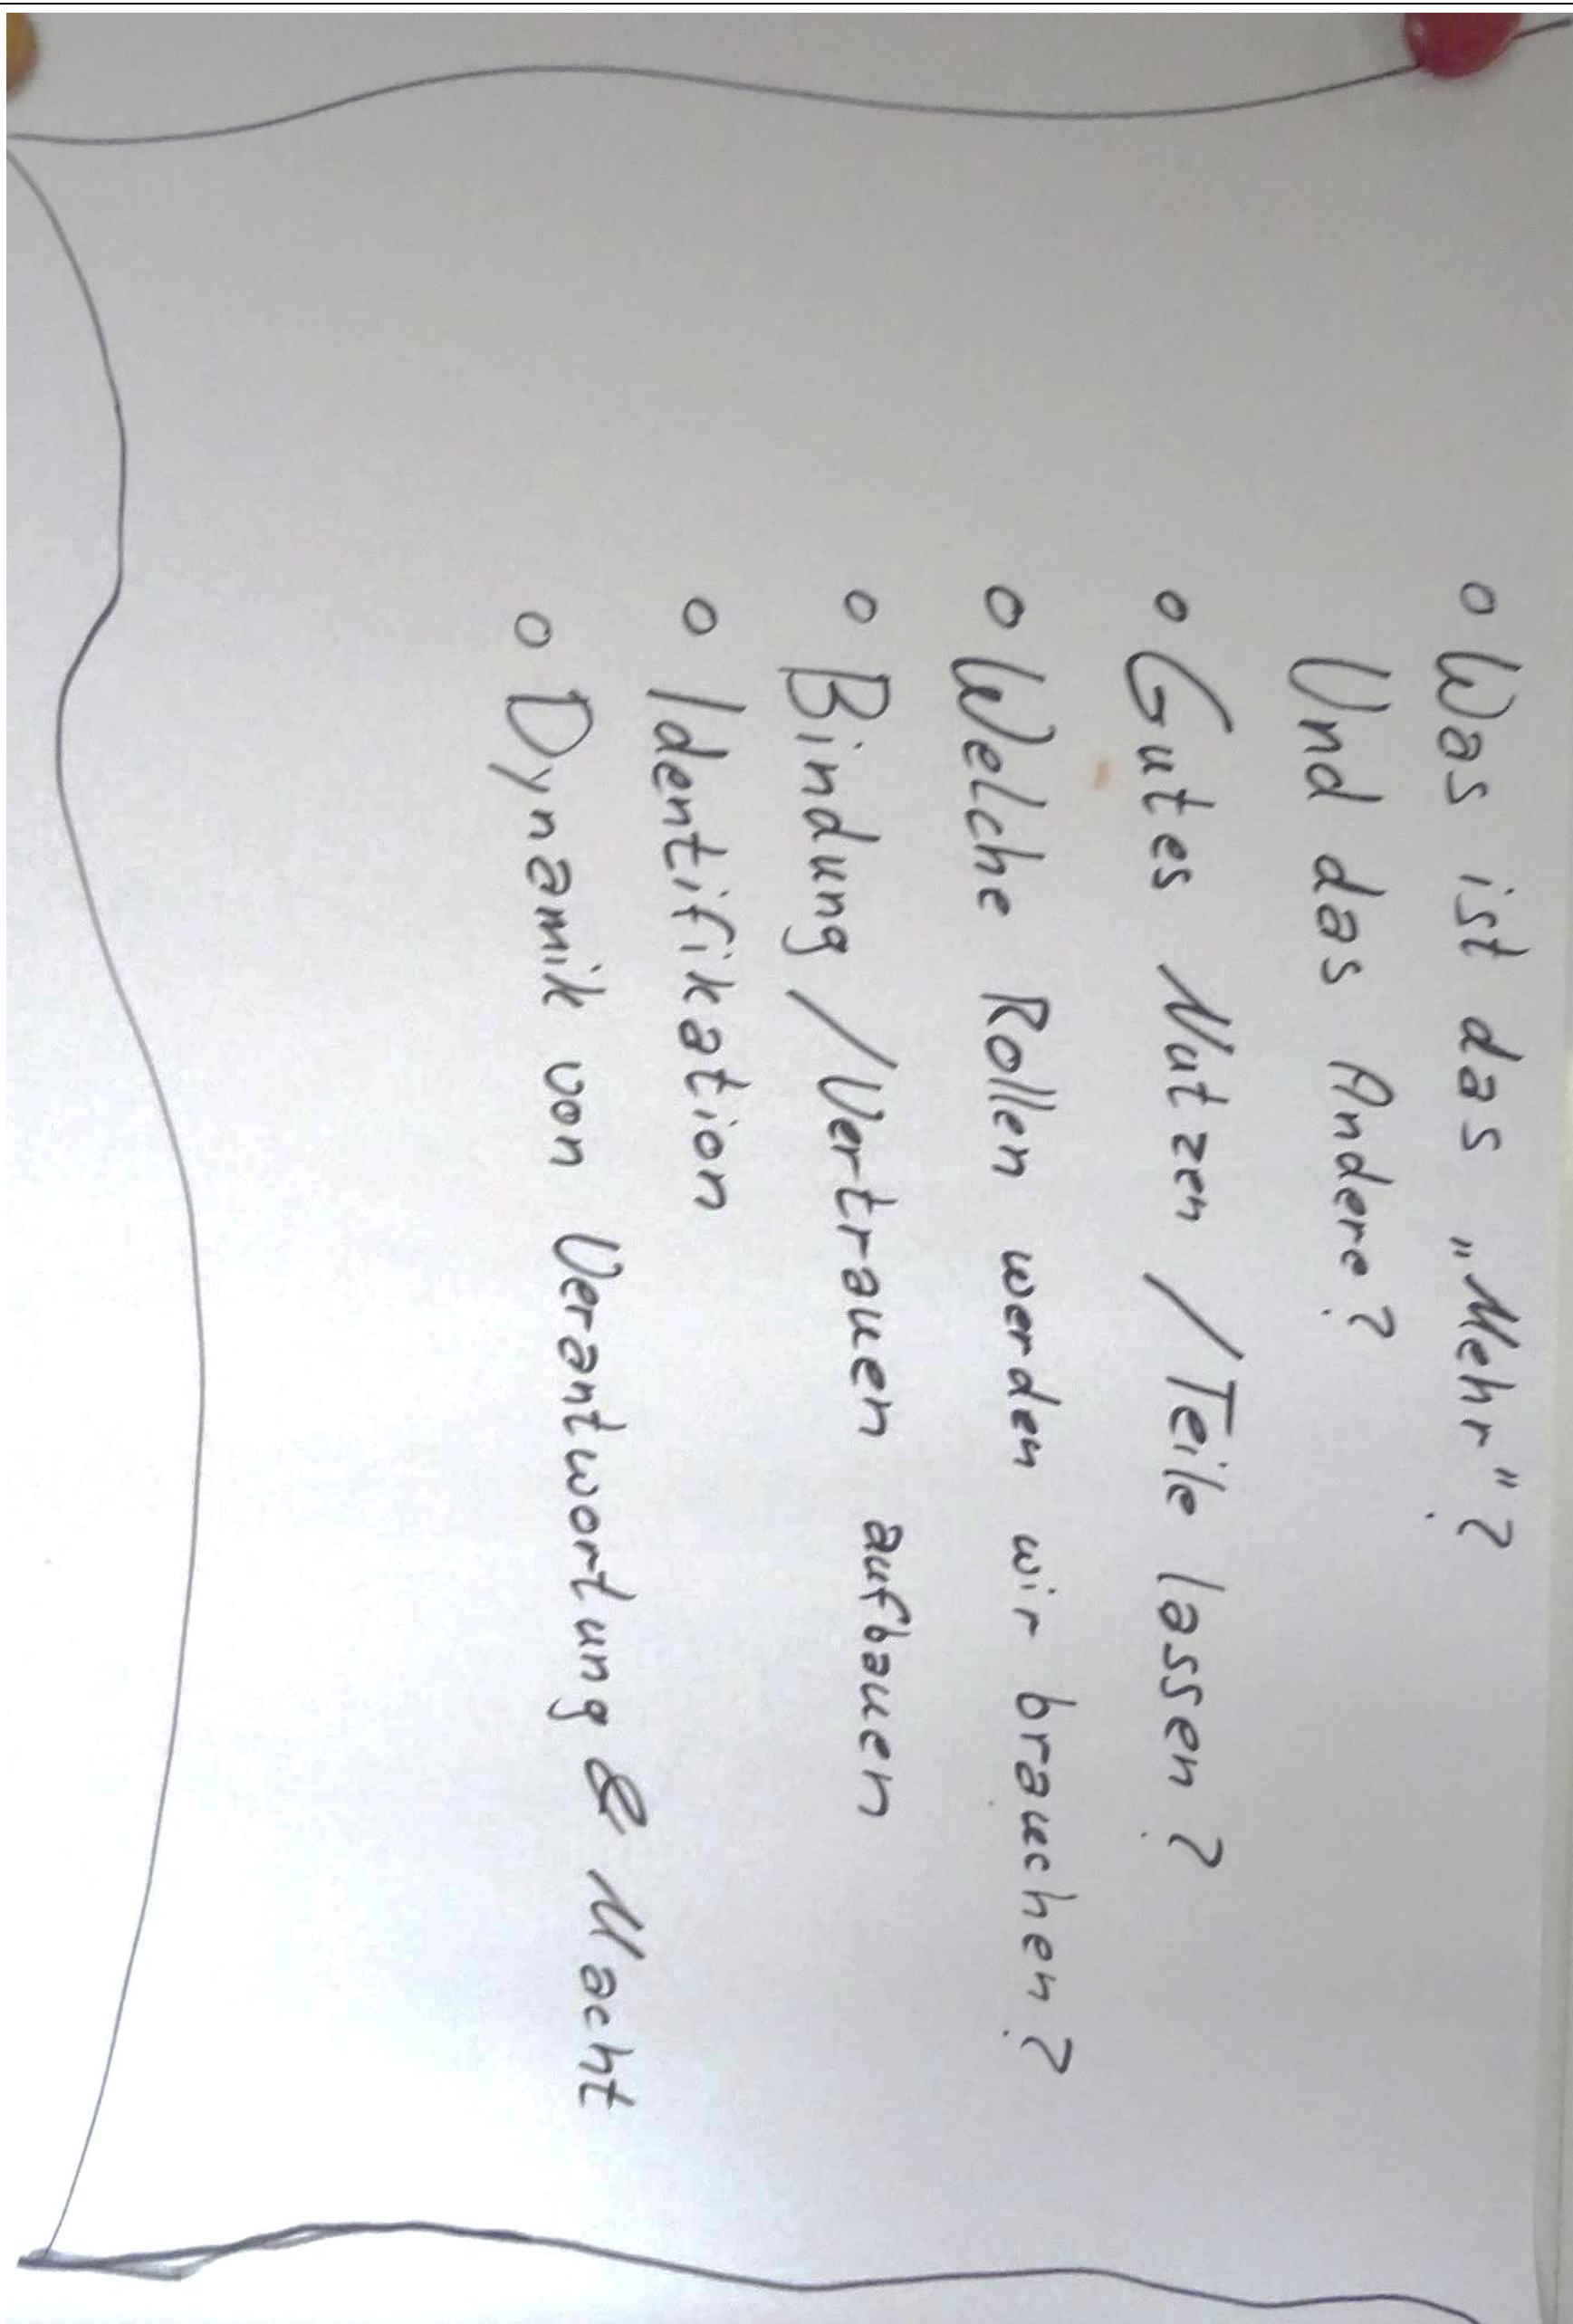 o Was ist das „Mehr"?
Und das Andere?
o Gutes Nutzen / Teile lassen?
o Welche Rollen werden wir brauchen?
o Bindung / Vertrauen aufbauen
o Identifikation
o Dynamik von Verantwortung & Macht